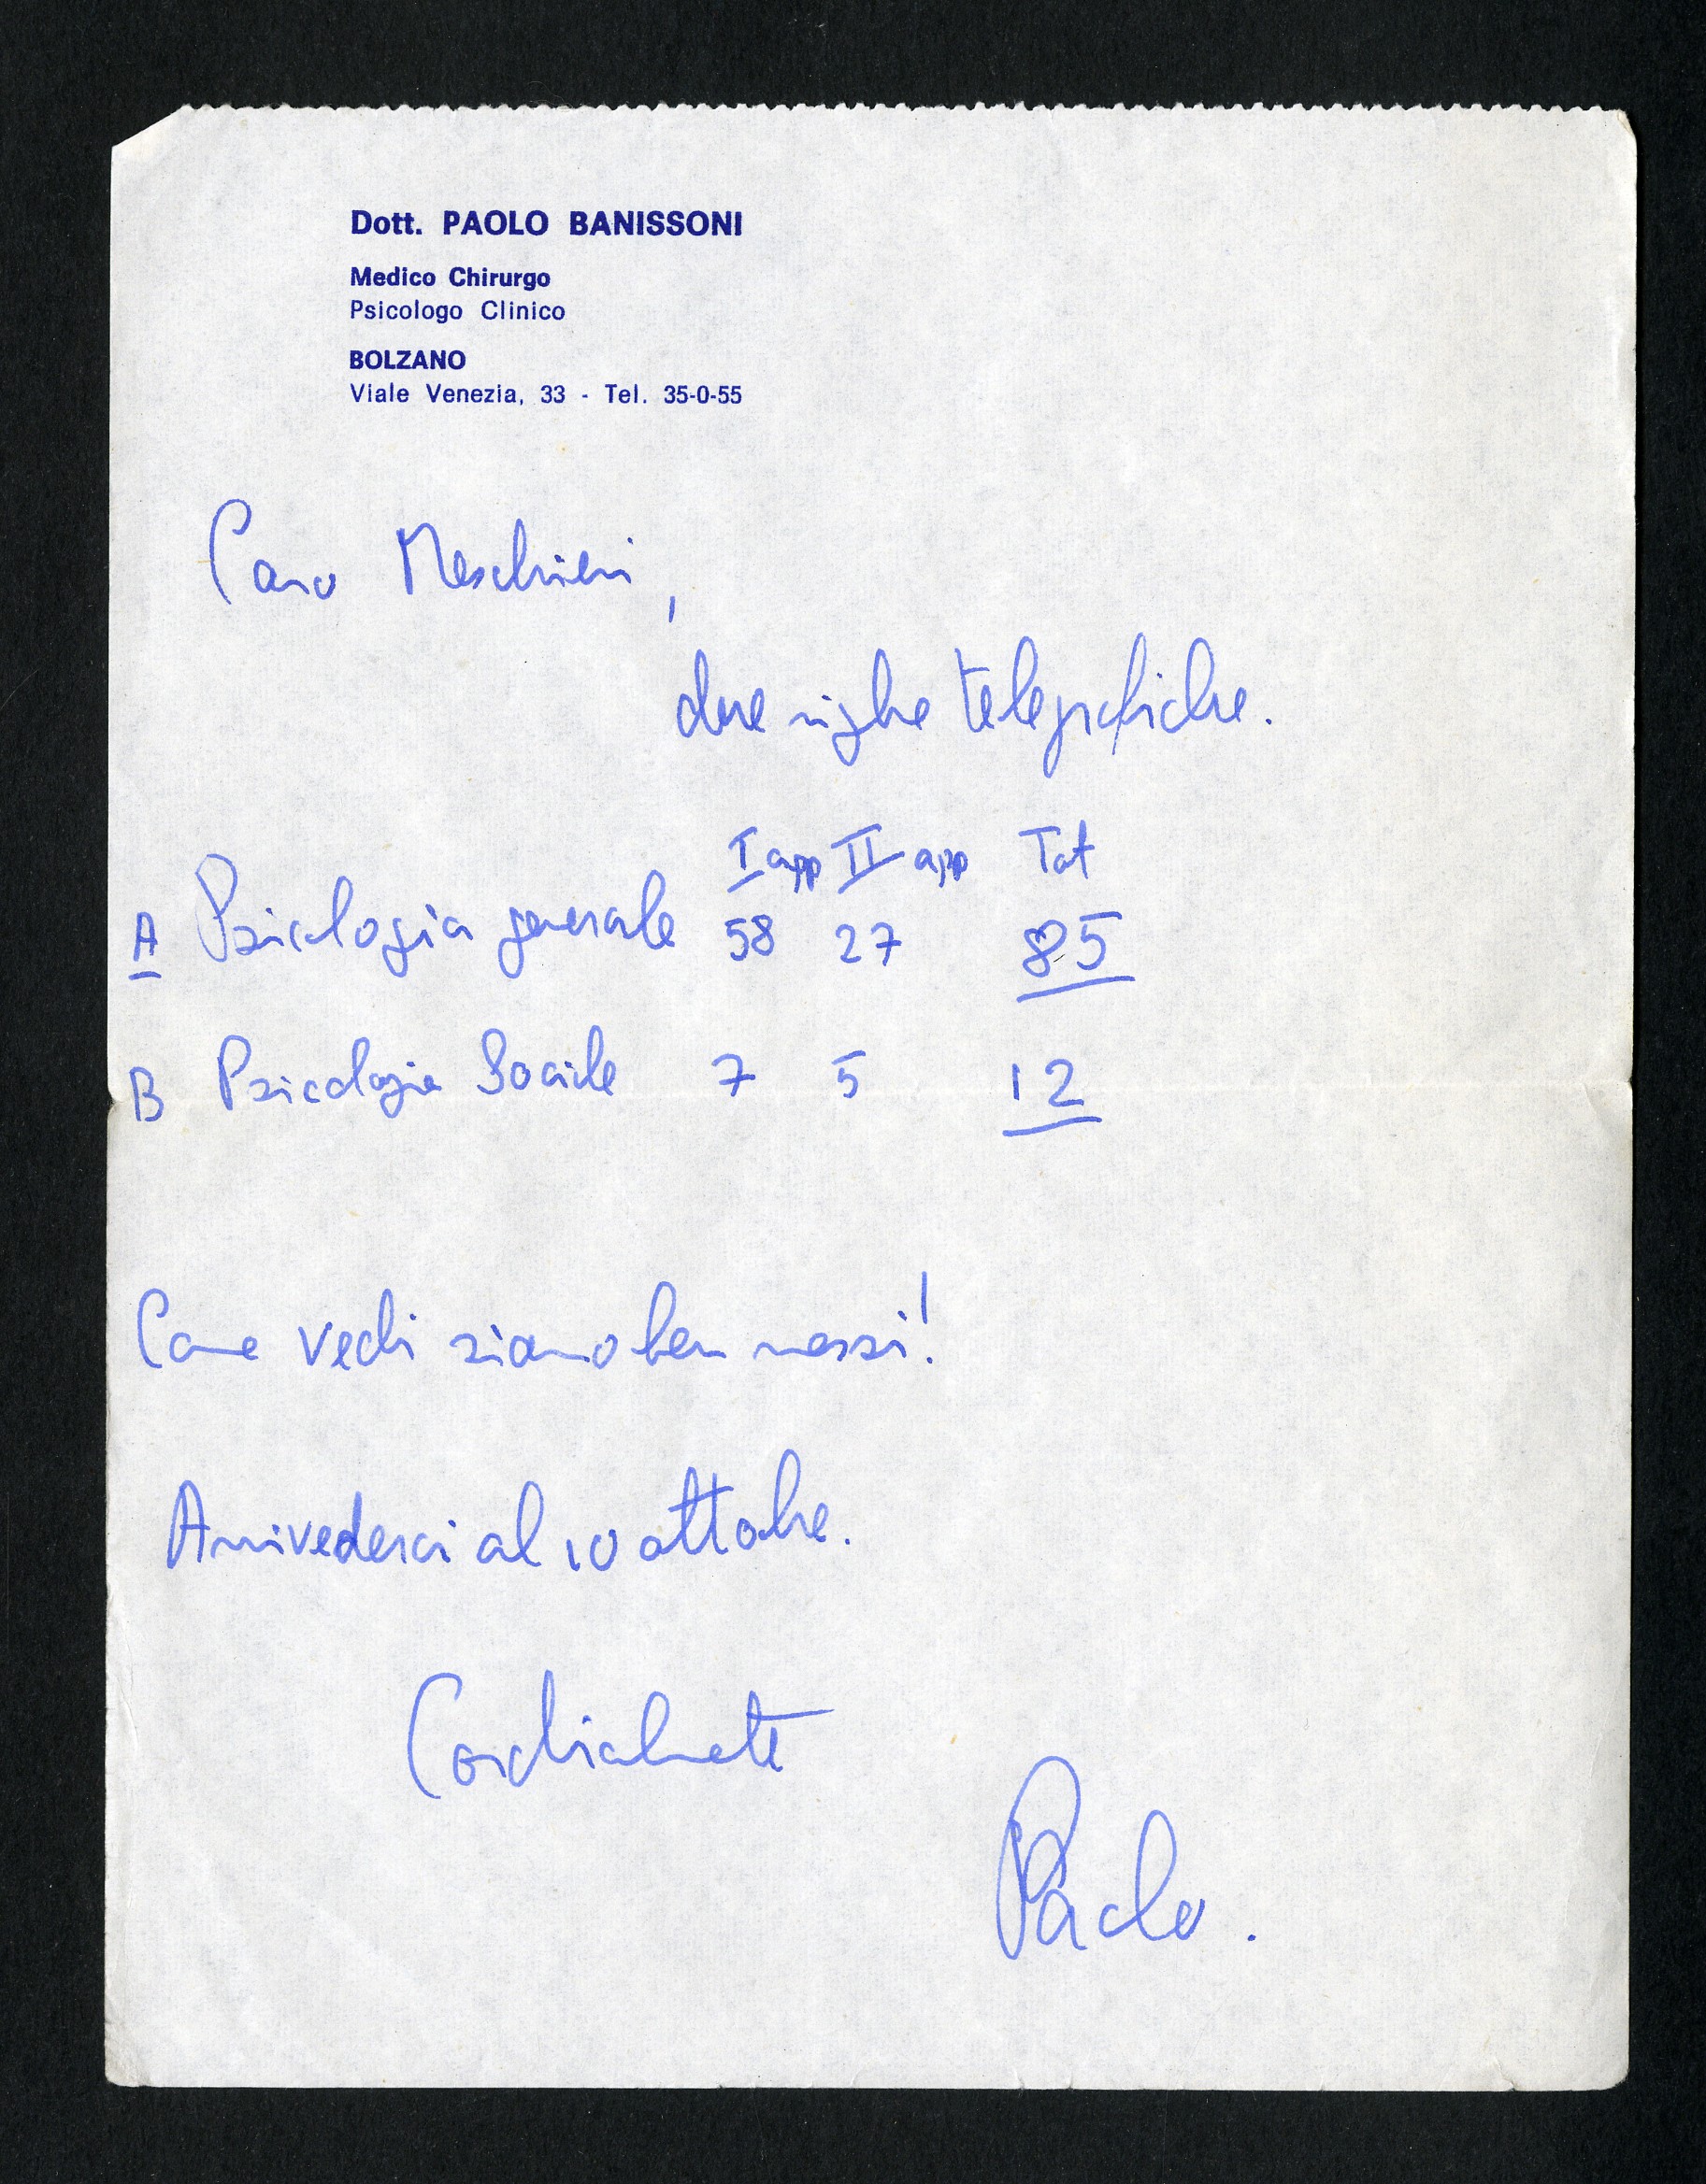 Dott. PAOLO BANISSONI
Medico Chirurgo
Psicologo Clinico
BOLZANO
Viale Venezia, 33 - Tel. 35-0-55
Caro Meschieri,
due righe telegrafiche.
I app II app Tot
A Psicologia generale 58 27 85
B Psicologia Sociale 7 5 12
Come vedi siamo ben messi!
Arrivederci al 10 ottobre.
Cordialmente
Paolo.